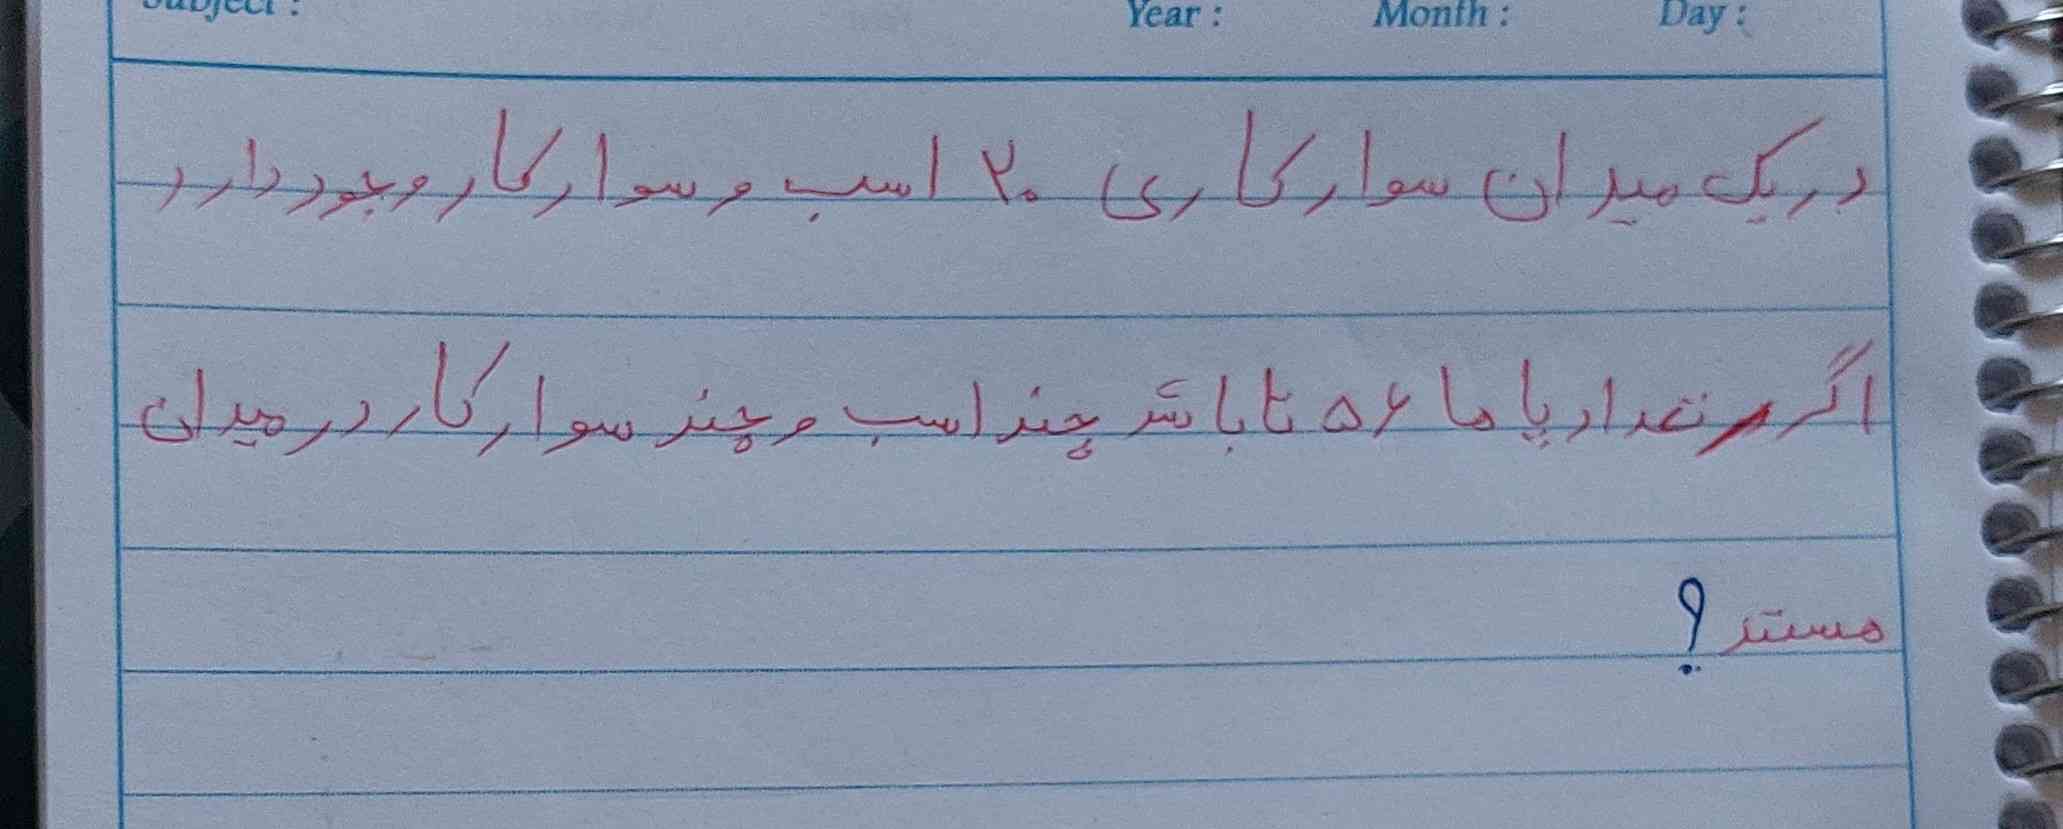 Subject : Year : Month : Day :
در یک میدان سوارکاری ۲۰ اسب و سوارکار وجود دارد
اگر تعداد پاها ۵۶ تا باشد چند اسب و چند سوارکار در میدان
هستند ؟